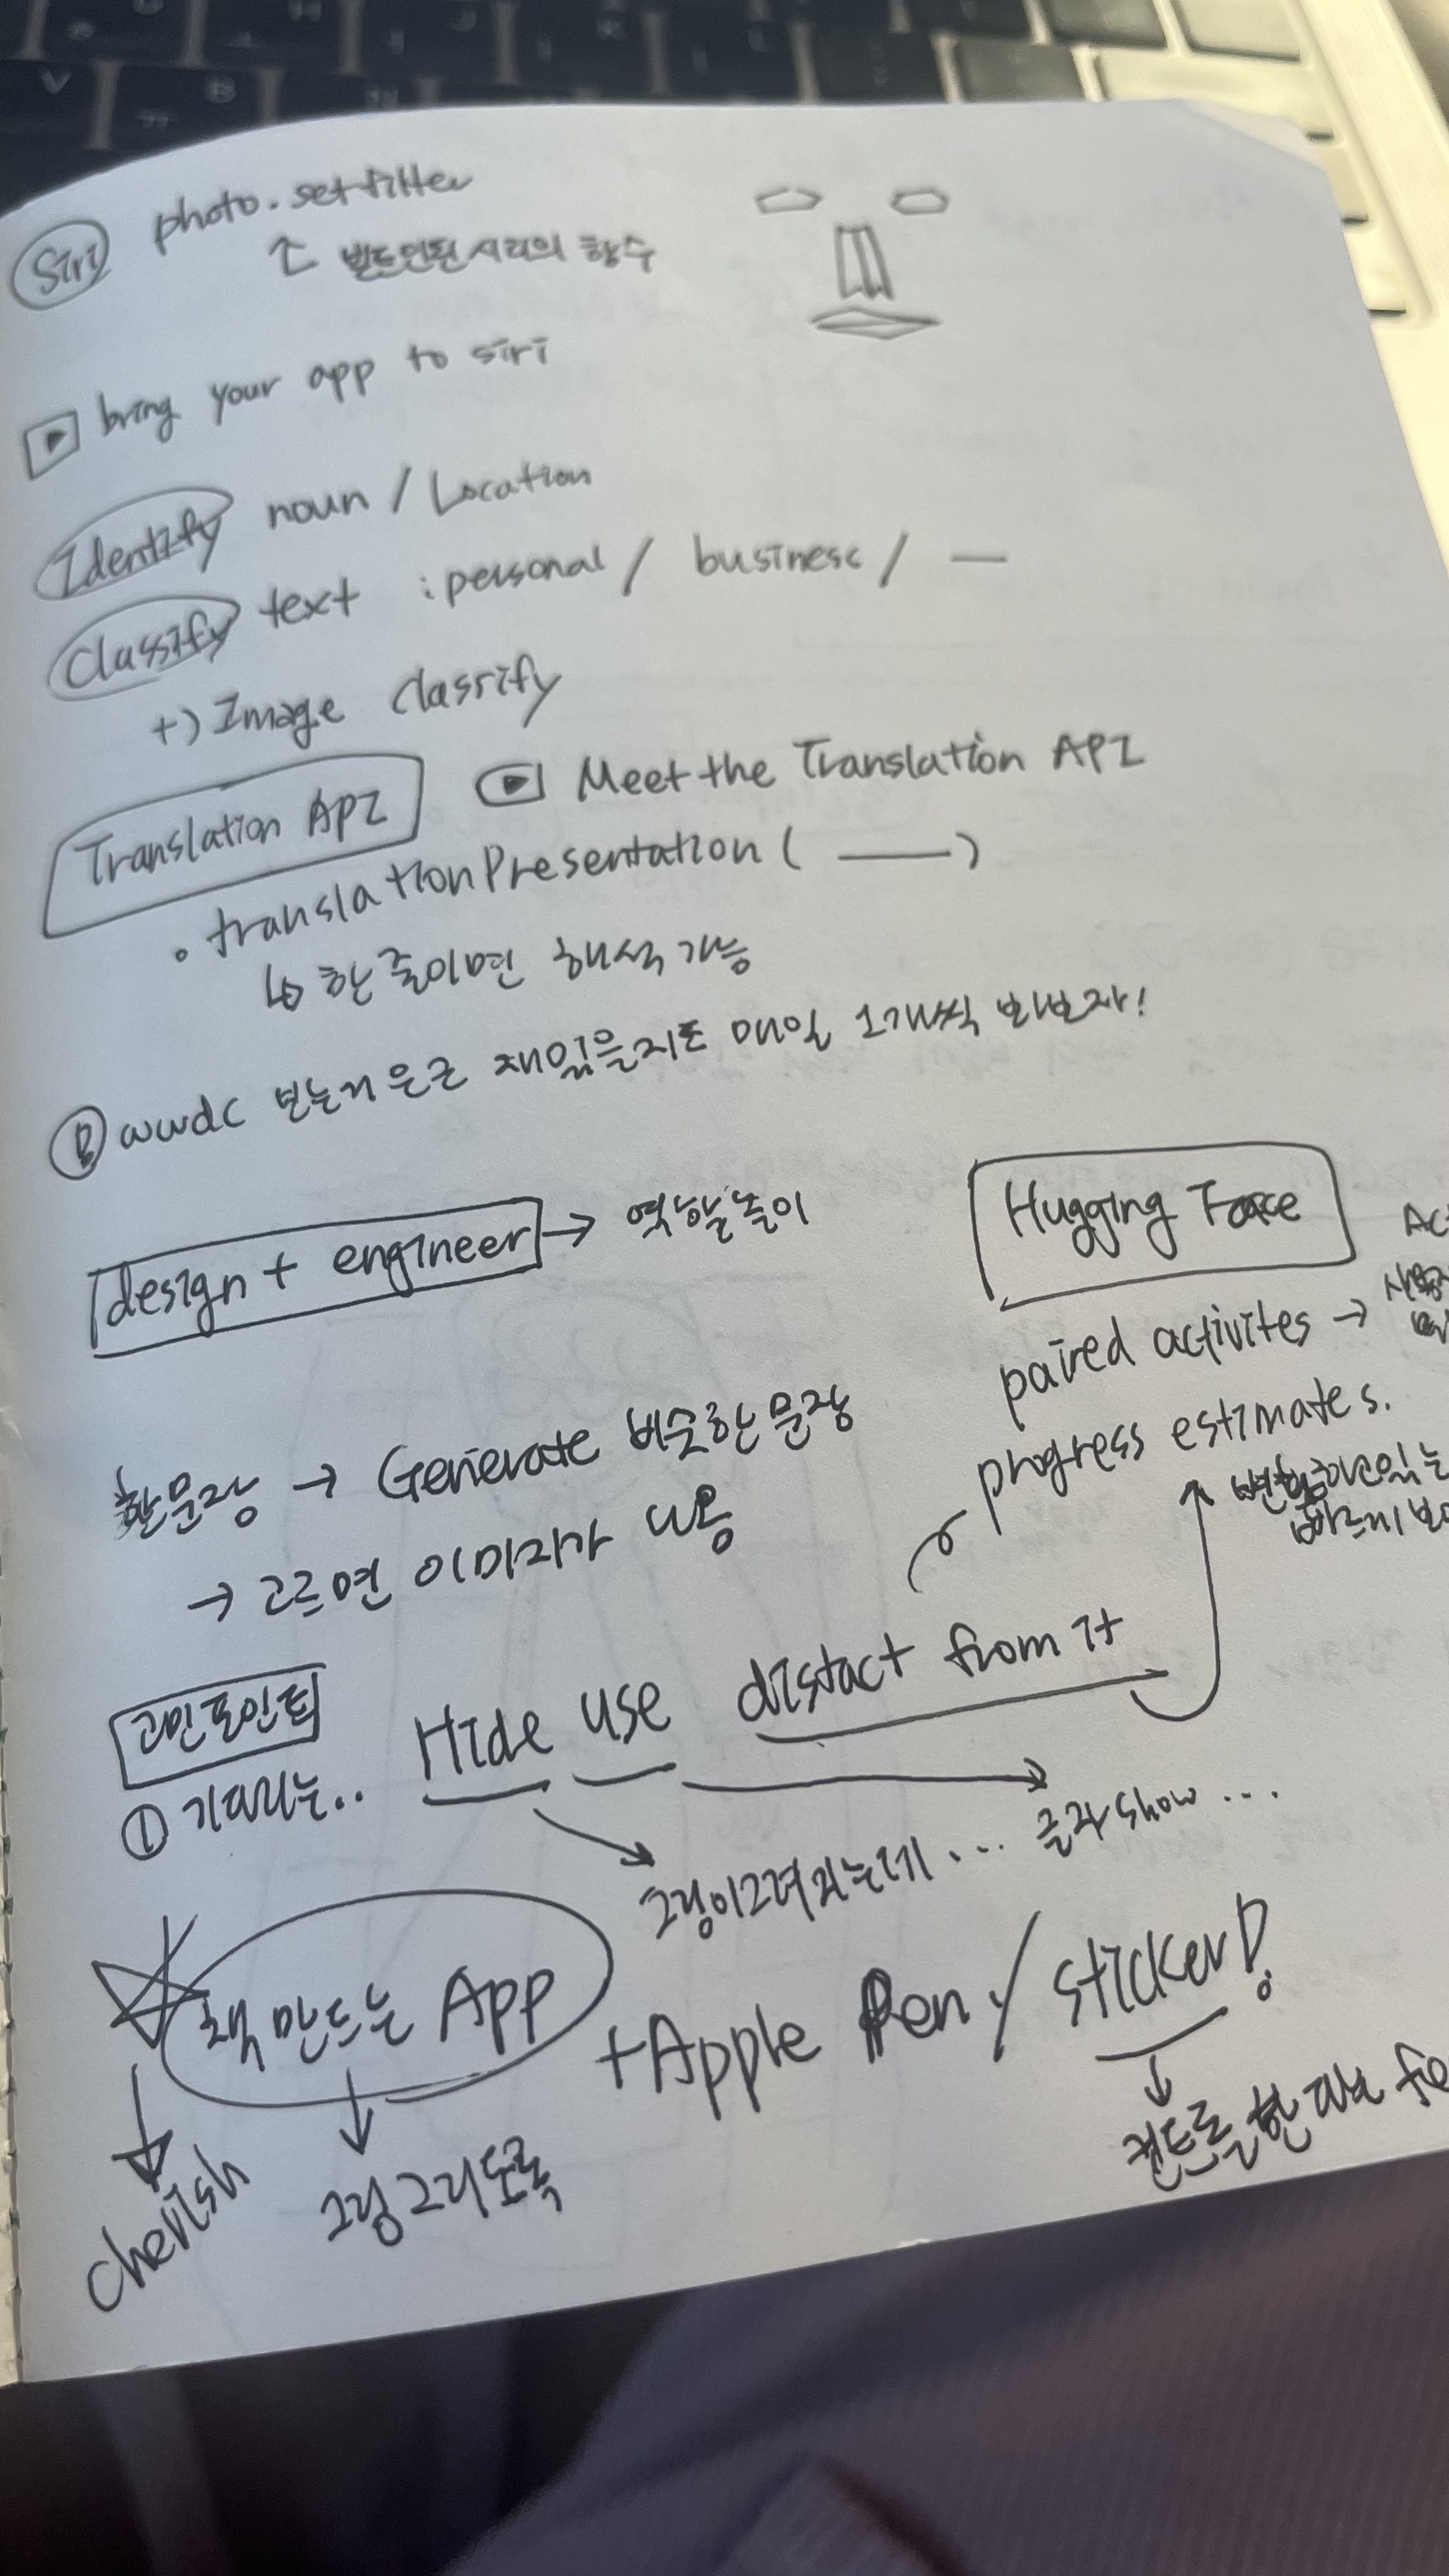 Siri photo.setfilter
↑ 빌트인된 시리의 함수
bring your app to siri
Identify noun / Location
Classify text : personal / business / —
+) Image classify
Translation API Meet the Translation API
. translationPresentation ( —— )
↳ 한 줄이면 해석 가능
wwdc 보는거 은근 재밌을지도 매일 1개씩 봐보자!
design + engineer → 역할놀이
Hugging Face
paired activites →
progress estimates.
한문장 → Generate 비슷한 문장
→ 고르면 이미지가 나옴
고민포인트
① 기다리는.. Hide use distact from it
그림이 그려지는데... 글자 show ...
책 만드는 App + Apple Pen / sticker!
cherish
그림 그리도록
컨트롤 한